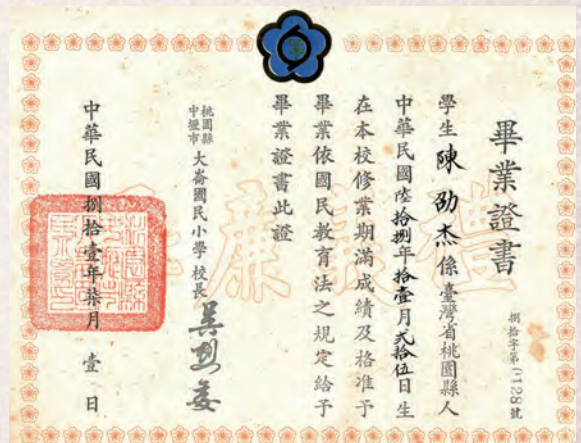 畢業證書
捌拾字第0128號
學生陳劭杰係臺灣省桃園縣人
中華民國陸拾捌年拾壹月貳拾伍日生
在本校修業期滿成績及格准予
畢業依國民教育法之規定給予
畢業證書此證
桃園縣
中壢市
大崙國民小學校長
中華民國捌拾壹年柒月壹日
禮義廉